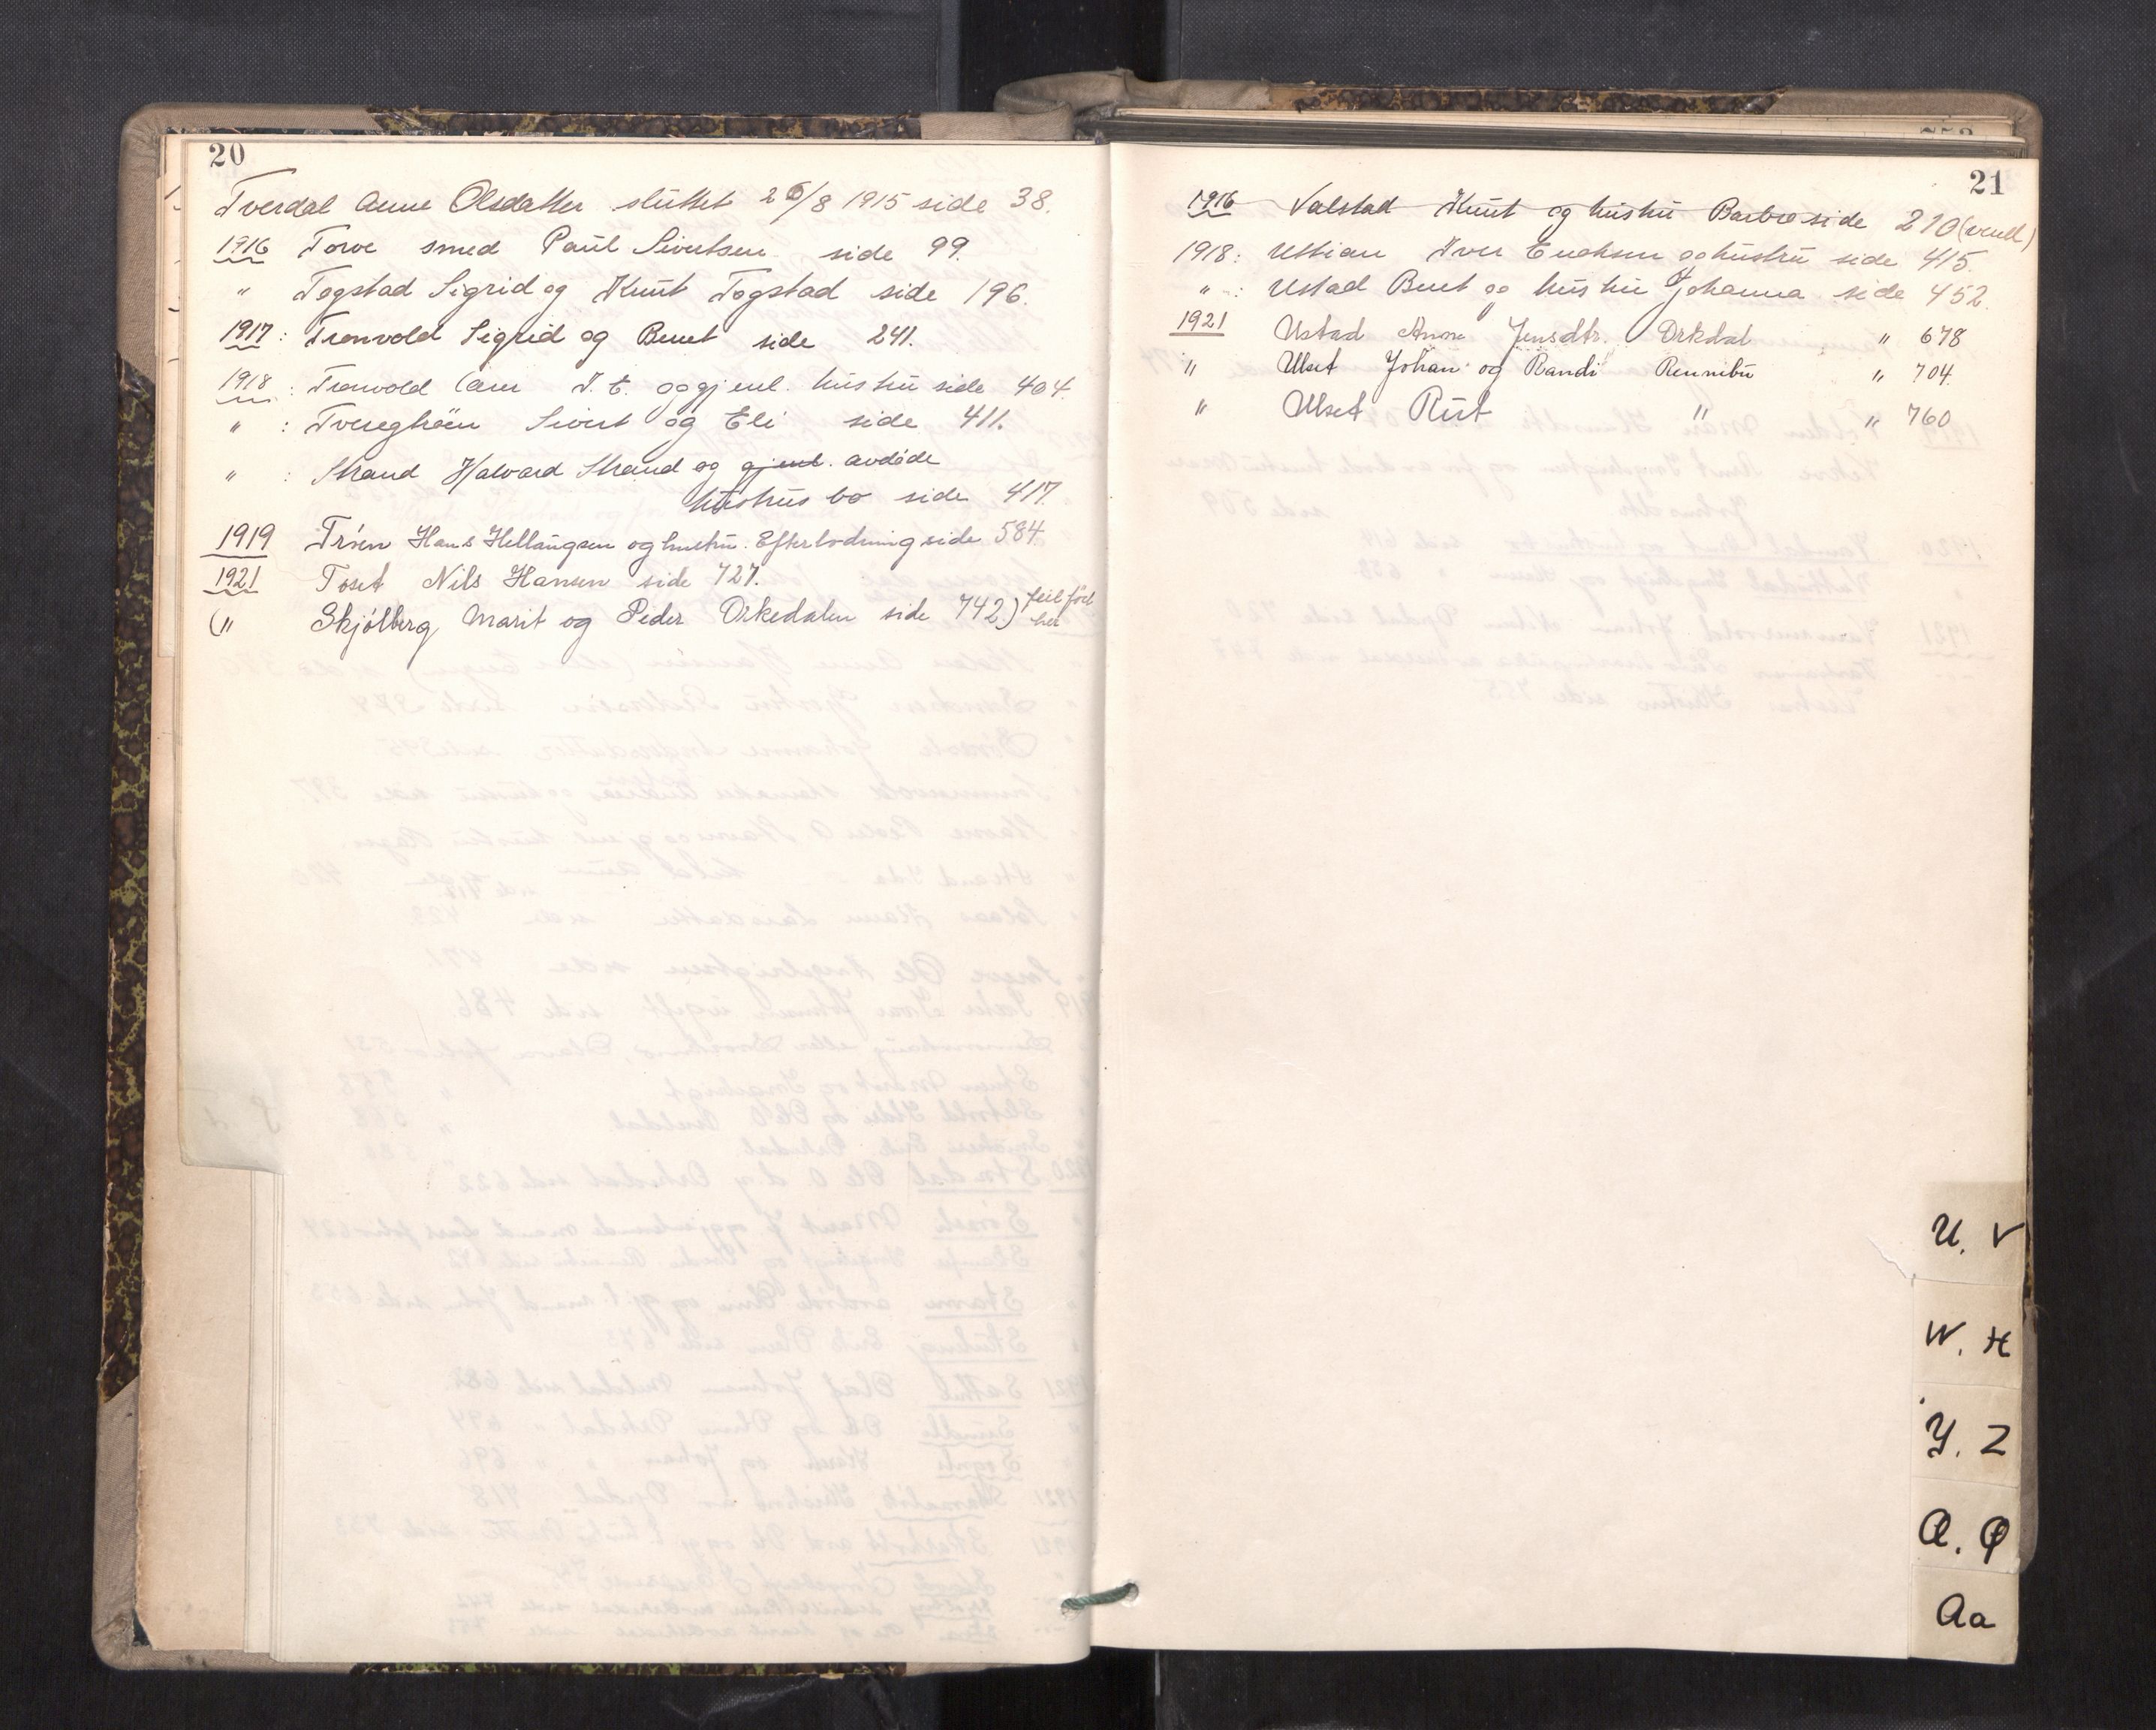 20
Tverdal Anne Olsdatter sluttet 26/8 1915 side 38.
1916 Torve smed Paul Sivertsen side 99.
" Togstad Sigrid og Knut Togstad side 196.
1917: Tronvold Sigrid og Beret side 241.
1918: Tronvold Ane I. E. og gjenl. hustru side 404.
" : Sivert og Eli side 411.
" : Strand Halvard Strand og gjenl. avdøde
hustrus bo side 417.
1919 Trøen Hans Hellaugsen og hustru. Efterlodning side 584
1921 Toset Nils Hansen side 727.
(" Skjølberg Marit og Peder Orkedalen side 742.) feil ført
her
21
1916 Valstad Knut og hustru Barbro side 210 (vend)
1918: Ustian Iver Enoksen og hustru side 415.
" : Ustad Beret og hustru Johanna side 452.
1921 Ustad Anne Jensdtr. Orkdal " 678
" Ulset Johan og Randi Rennibu " 704.
" Ulset Rut " " 760
U. V
W. H
Y. Z
Æ. Ø
Aa